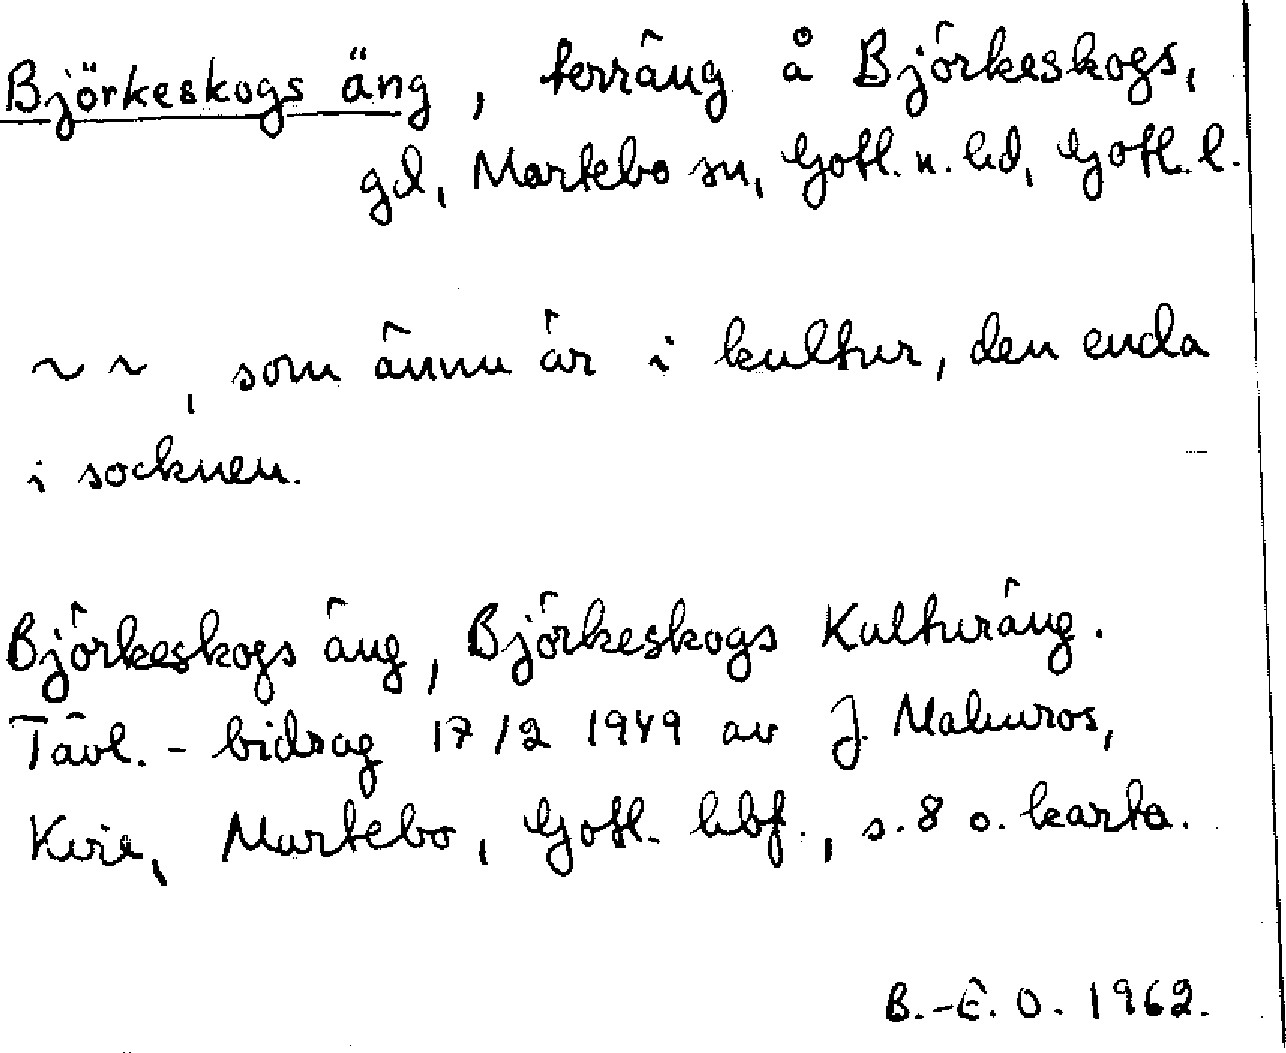 Björkeskogs äng, terräng å Björkeskogs,
gd, Martebo sn, Gotl. n. hd, Gotl. l.
~ ~, som ännu är i kultur, den enda
i socknen.
Björkeskogs äng, Björkeskogs Kulturäng.
Tävl.-bidrag 17/2 1949 av J. Mahnros,
Kvie, Martebo, Gotl. hbf., s. 8 o. karta.
B.-E. O. 1962.